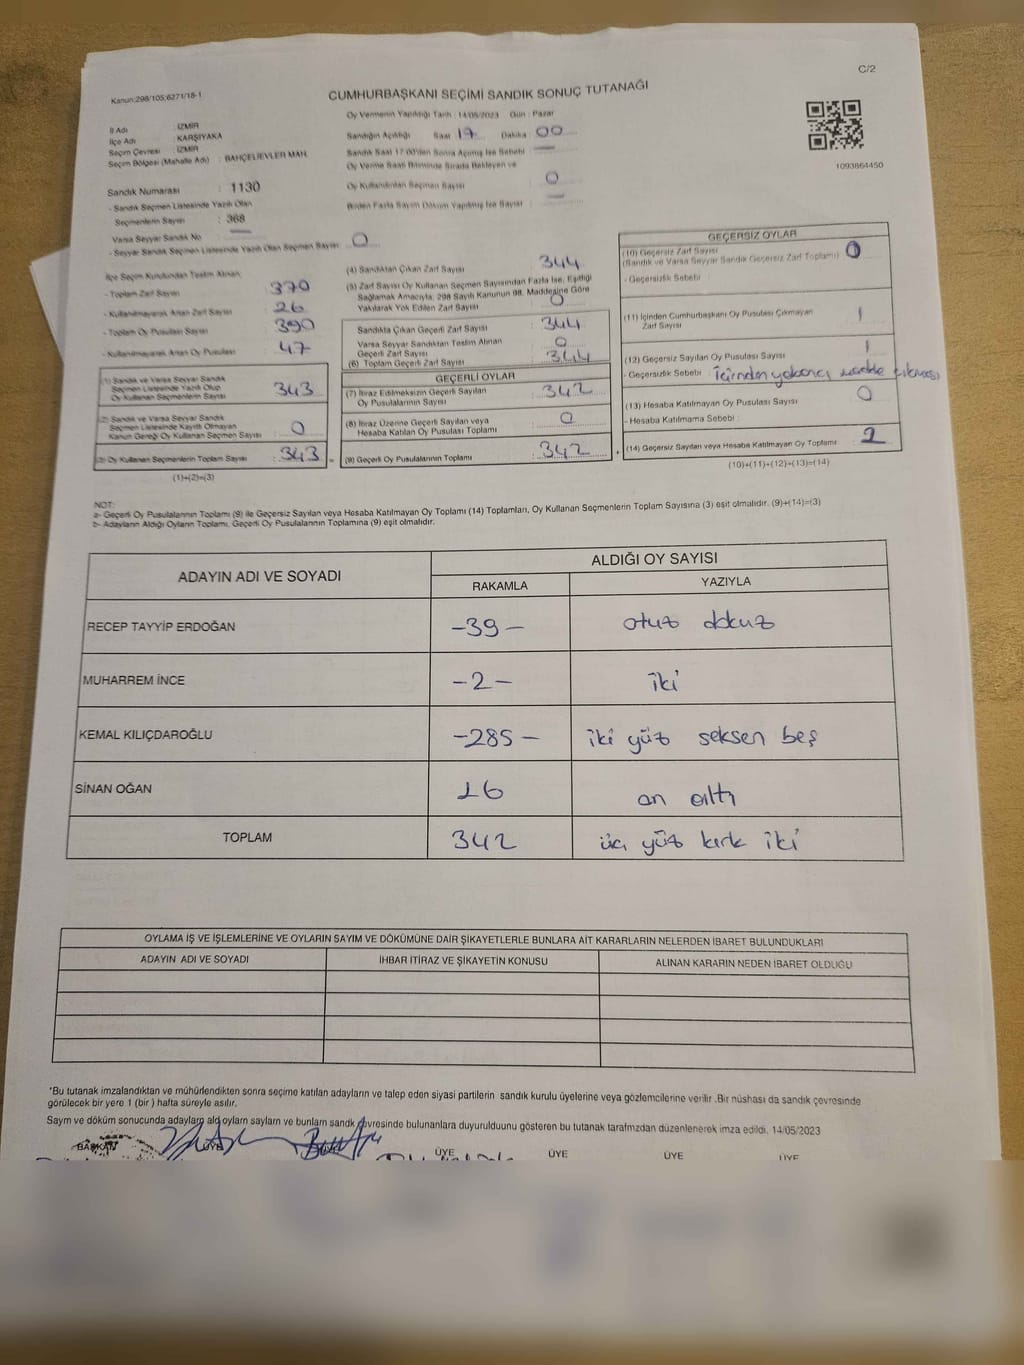 C/2
Kanun:298/105;6271/18-1
CUMHURBAŞKANI SEÇİMİ SANDIK SONUÇ TUTANAĞI
İl Adı : İZMİR
İlçe Adı : KARŞIYAKA
Seçim Çevresi : İZMİR
Seçim Bölgesi (Mahalle Adı) : BAHÇELİEVLER MAH.
Sandık Numarası : 1130
- Sandık Seçmen Listesinde Yazılı Olan
Seçmenlerin Sayısı : 368
Varsa Seyyar Sandık No
- Seyyar Sandık Seçmen Listesinde Yazılı Olan Seçmen Sayısı : 0
Oy Vermenin Yapıldığı Tarih : 14/05/2023 Gün : Pazar
Sandığın Açıldığı Saat 17 Dakika : 00
Sandık Saat 17.00'den Sonra Açılmış İse Sebebi —
Oy Verme Saati Bitiminde Sırada Bekleyen ve
Oy Kullandırılan Seçmen Sayısı 0
Birden Fazla Sayım Döküm Yapılmış İse Sayısı : —
1093864450
İlçe Seçim Kurulundan Teslim Alınan
- Toplam Zarf Sayısı 370
- Kullanılmayarak Artan Zarf Sayısı : 26
- Toplam Oy Pusulası Sayısı : 390
- Kullanılmayarak Artan Oy Pusulası : 47
(1) Sandık ve Varsa Seyyar Sandık
Seçmen Listesinde Yazılı Olup
Oy Kullanan Seçmenlerin Sayısı : 343
(2) Sandık ve Varsa Seyyar Sandık
Seçmen Listesinde Kayıtlı Olmayan
Kanun Gereği Oy Kullanan Seçmen Sayısı : 0
(3) Oy Kullanan Seçmenlerin Toplam Sayısı : 343
(1)+(2)=(3)
(4) Sandıktan Çıkan Zarf Sayısı 344
(5) Zarf Sayısı Oy Kullanan Seçmen Sayısından Fazla İse, Eşitliği
Sağlamak Amacıyla, 298 Sayılı Kanunun 98. Maddesine Göre
Yakılarak Yok Edilen Zarf Sayısı : 0
Sandıkta Çıkan Geçerli Zarf Sayısı : 344
Varsa Seyyar Sandıktan Teslim Alınan
Geçerli Zarf Sayısı : 0
(6) Toplam Geçerli Zarf Sayısı : 344
GEÇERLİ OYLAR
(7) İtiraz Edilmeksizin Geçerli Sayılan
Oy Pusulalarının Sayısı : 342
(8) İtiraz Üzerine Geçerli Sayılan veya
Hesaba Katılan Oy Pusulaları Toplamı : 0
(9) Geçerli Oy Pusulalarının Toplamı : 342
GEÇERSİZ OYLAR
(10) Geçersiz Zarf Sayısı
(Sandık ve Varsa Seyyar Sandık Geçersiz Zarf Toplamı) : 0
- Geçersizlik Sebebi :
(11) İçinden Cumhurbaşkanı Oy Pusulası Çıkmayan
Zarf Sayısı 1
(12) Geçersiz Sayılan Oy Pusulası Sayısı 1
- Geçersizlik Sebebi : İçinden yabancı madde çıkması
(13) Hesaba Katılmayan Oy Pusulası Sayısı 0
- Hesaba Katılmama Sebebi :
(14) Geçersiz Sayılan veya Hesaba Katılmayan Oy Toplamı : 2
(10)+(11)+(12)+(13)=(14)
NOT:
a- Geçerli Oy Pusulalarının Toplamı (9) ile Geçersiz Sayılan veya Hesaba Katılmayan Oy Toplamı (14) Toplamları, Oy Kullanan Seçmenlerin Toplam Sayısına (3) eşit olmalıdır. (9)+(14)=(3)
b- Adayların Aldığı Oyların Toplamı, Geçerli Oy Pusulalarının Toplamına (9) eşit olmalıdır.
ADAYIN ADI VE SOYADI
ALDIĞI OY SAYISI
RAKAMLA YAZIYLA
RECEP TAYYİP ERDOĞAN -39- otuz dokuz
MUHARREM İNCE -2- iki
KEMAL KILIÇDAROĞLU -285- iki yüz seksen beş
SİNAN OĞAN 16 on altı
TOPLAM 342 üç yüz kırk iki
OYLAMA İŞ VE İŞLEMLERİNE VE OYLARIN SAYIM VE DÖKÜMÜNE DAİR ŞİKAYETLERLE BUNLARA AİT KARARLARIN NELERDEN İBARET BULUNDUKLARI
ADAYIN ADI VE SOYADI İHBAR İTİRAZ VE ŞİKAYETİN KONUSU ALINAN KARARIN NEDEN İBARET OLDUĞU
*Bu tutanak imzalandıktan ve mühürlendikten sonra seçime katılan adayların ve talep eden siyasi partilerin sandık kurulu üyelerine veya gözlemcilerine verilir .Bir nüshası da sandık çevresinde
görülecek bir yere 1 (bir ) hafta süreyle asılır.
Sayım ve döküm sonucunda adayların ald oyların sayıları ve bunların sandık çevresinde bulunanlara duyurulduunu gösteren bu tutanak tarafmzdan düzenlenerek imza edildi. 14/05/2023
BAŞKAN ÜYE ÜYE ÜYE ÜYE ÜYE